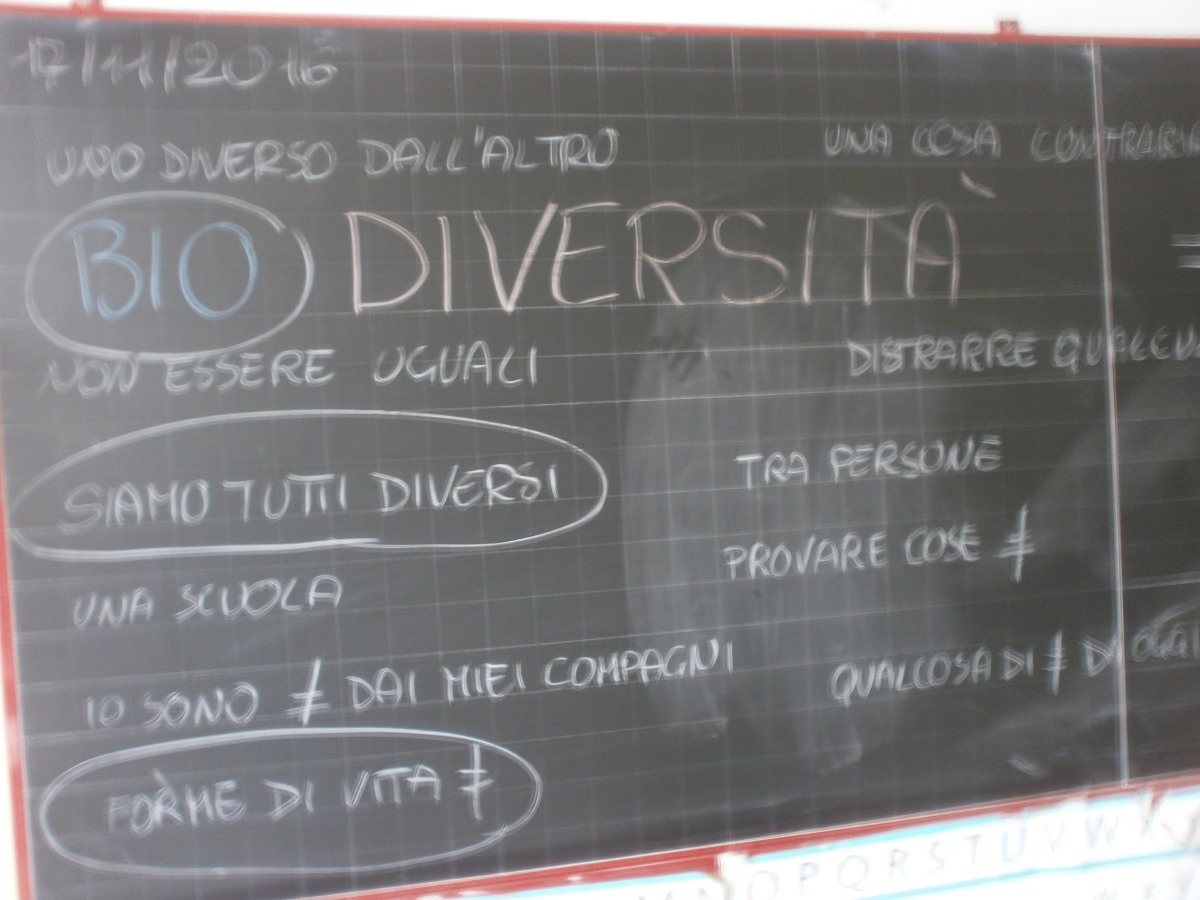 17/11/2016
UNO DIVERSO DALL'ALTRO
UNA COSA
BIO DIVERSITÀ
=
NON ESSERE UGUALI
DISTRARRE
SIAMO TUTTI DIVERSI
TRA PERSONE
PROVARE COSE ≠
UNA SCUOLA
IO SONO ≠ DAI MIEI COMPAGNI
QUALCOSA DI ≠ DI OGGI
FORME DI VITA ≠
O P Q R S T U V W X